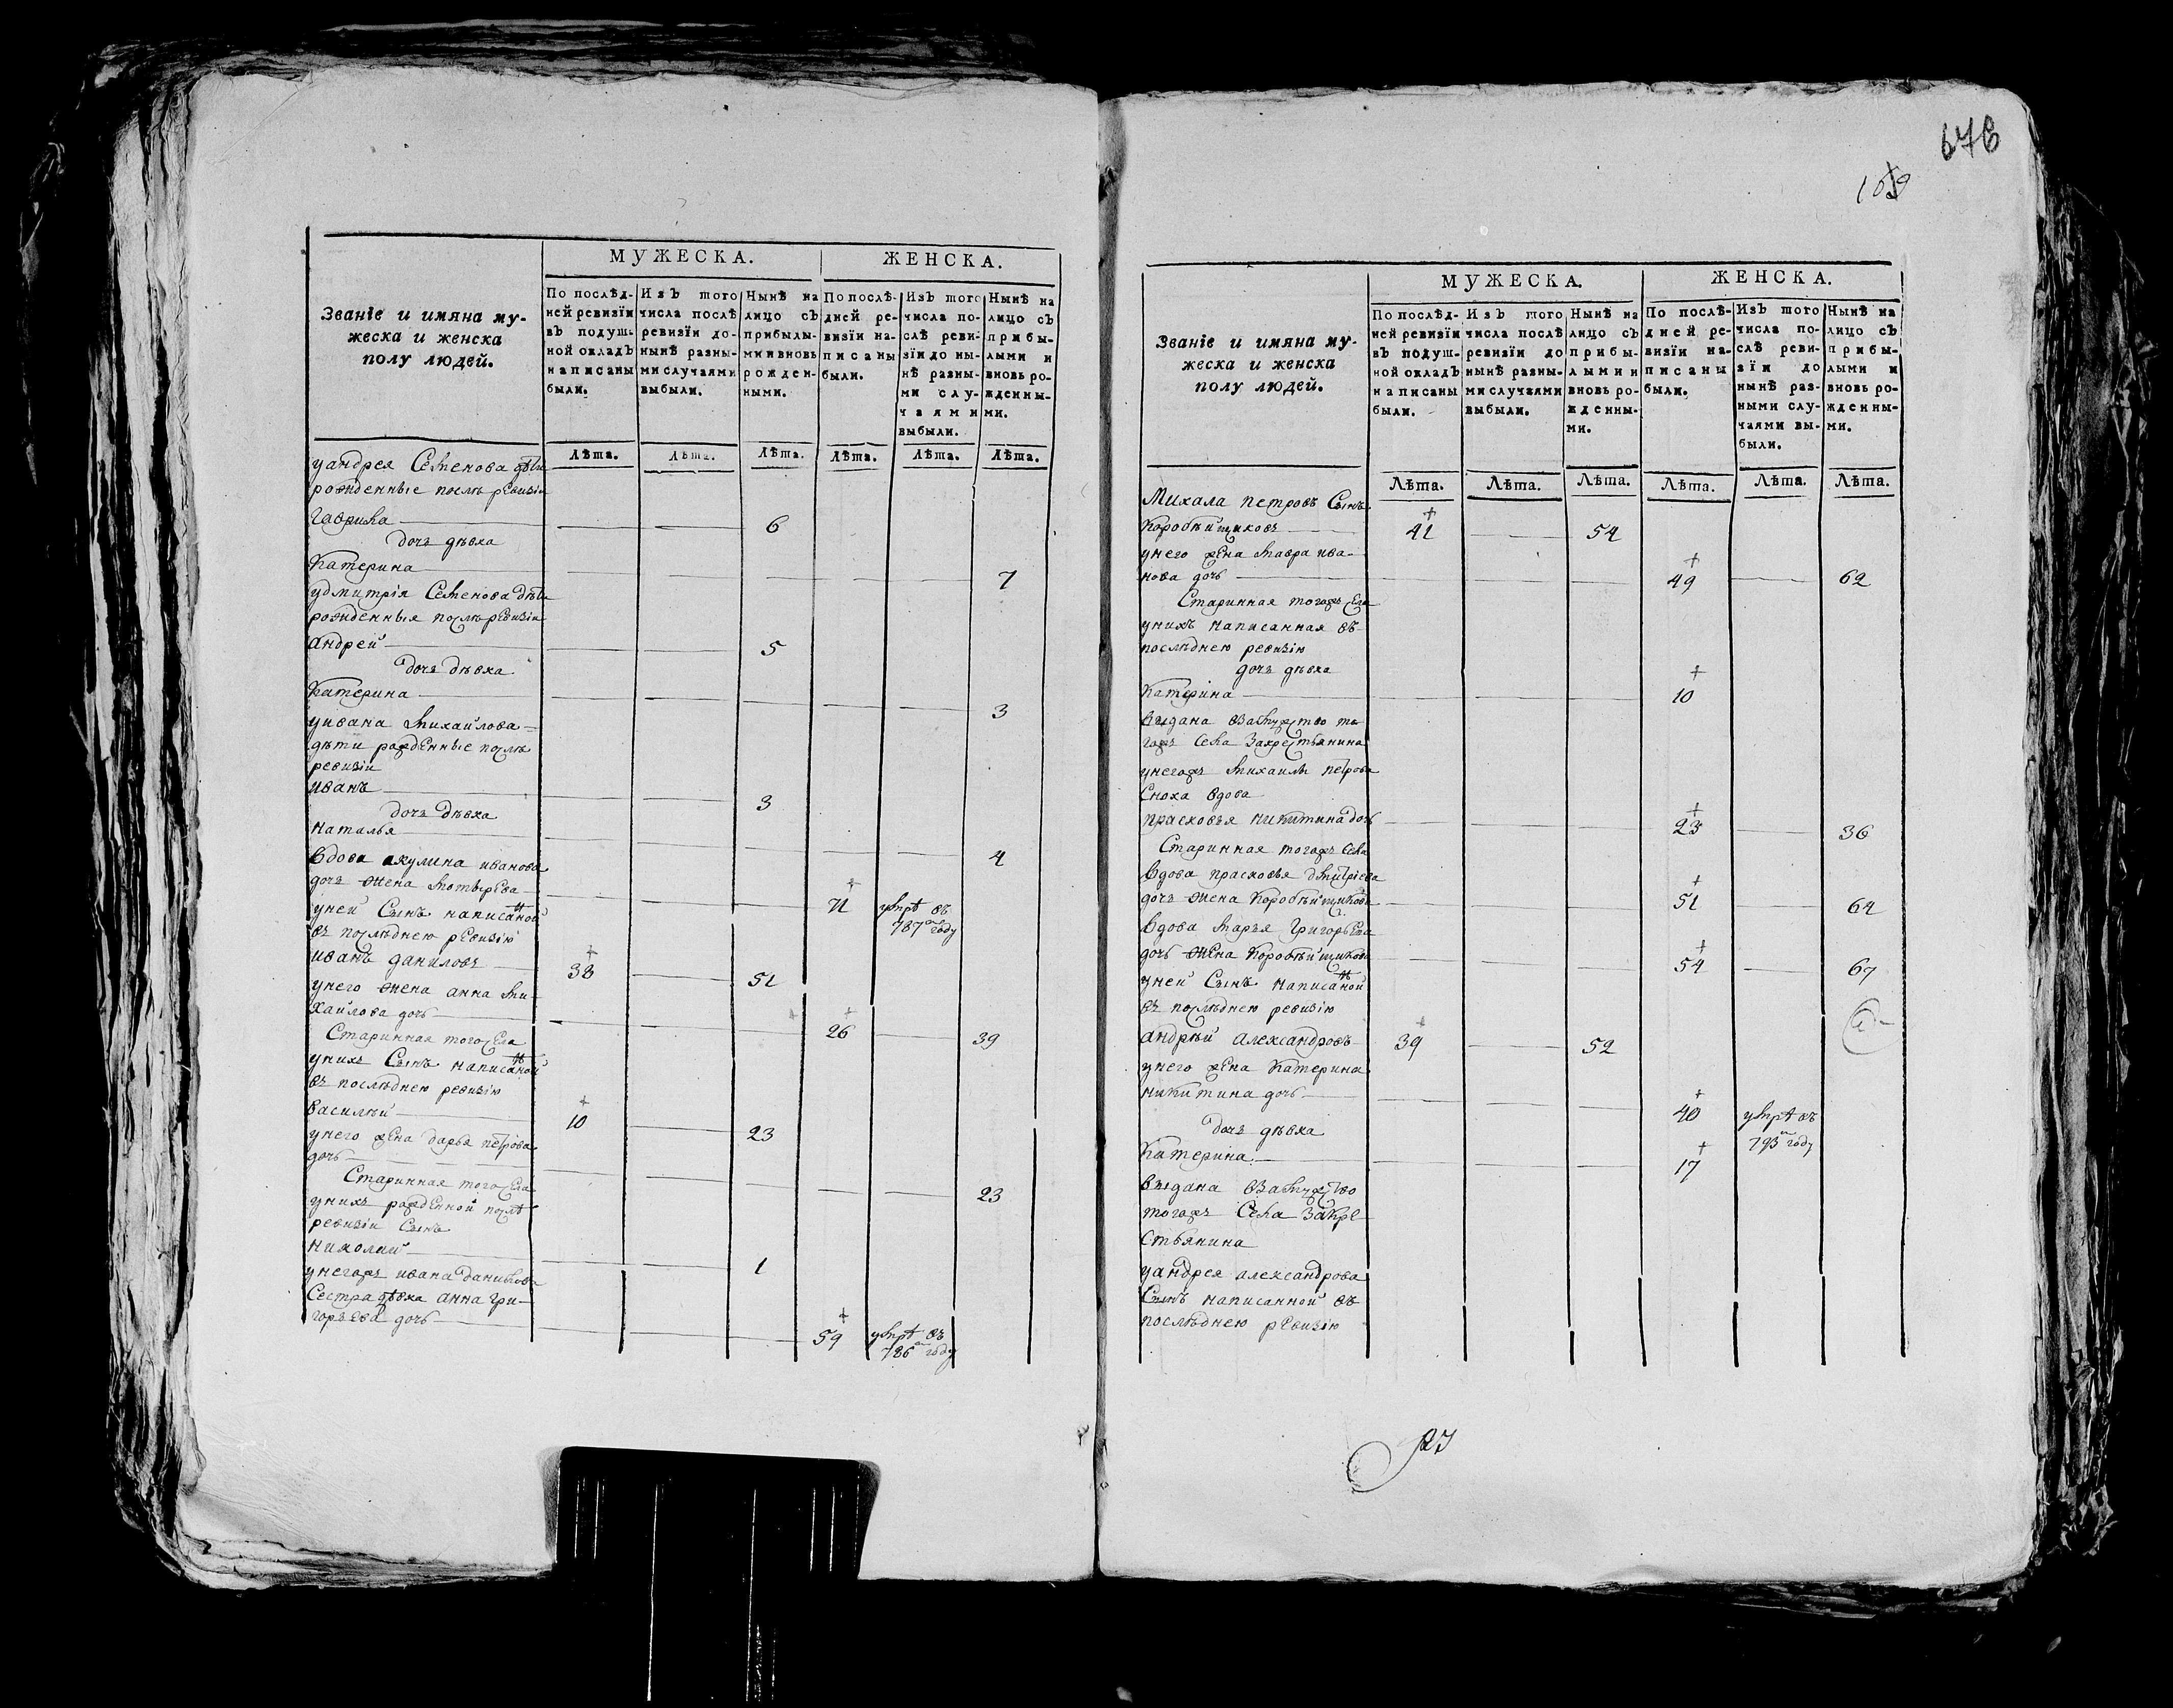 МУЖЕСКА.
ЖЕНСКА.
Званїе и имяна му-
жеска и женска
полу людей.
По послѣд-
ней ревизїи
въ подуш-
ной окладъ
написаны
были.
Изъ того
числа послѣ
ревизїи до-
нынѣ разны-
ми случаями
выбыли.
Нынѣ на
лицо съ
прибылы-
ми и вновь
рожден-
ными.
По послѣ-
дней ре-
визїи на-
писаны
были.
Изъ того
числа по-
слѣ реви-
зїи до ны-
нѣ разны-
ми слу-
чаями
выбыли.
Нынѣ на
лицо съ
прибы-
лыми и
вновь ро-
жденны-
ми.
Лѣта. Лѣта. Лѣта. Лѣта. Лѣта. Лѣта.
уандрея Семенова дѣти
рожденные послѣ ревизіи
Гаврила 6
дочь дѣвка
Катерина 7
удмитрія Семенова дѣти
рожденныя послѣ ревизіи
андрей 5
дочь дѣвка
Катерина 3
уивана михайлова
дѣти рожденные послѣ
ревизіи
иванъ 3
дочь дѣвка
наталья 4
вдова акулина иванова
дочь жена 71 умрѣ въ
787 году
уней Сынъ написаной
въ послѣднею ревизію
иванъ даниловъ 38 51
унего жена анна ми-
хайлова дочь 26 39
Старинная того села
унихъ Сынъ написаной
въ послѣднею ревизію
василей 10 23
унего жена дарья петрова
дочь 23
Старинная того села
унихъ рожденной послѣ
ревизіи Сынъ
николай 1
унегожъ ивана данилова
Сестра дѣвка анна гри-
горьева дочь 59 умрѣ въ
786 году
676
109
МУЖЕСКА.
ЖЕНСКА.
Званїе и имяна му-
жеска и женска
полу людей.
По послѣд-
ней ревизїи
въ подуш-
ной окладъ
написаны
были.
Изъ того
числа послѣ
ревизїи до
нынѣ разны-
ми случаями
выбыли.
Нынѣ на
лицо съ
прибы-
лыми и
вновь ро-
жденны-
ми.
По послѣ-
дней ре-
визїи на-
писаны
были.
Изъ того
числа по-
слѣ реви-
зїи до
нынѣ раз-
ными слу-
чаями вы-
были.
Нынѣ на
лицо съ
прибы-
лыми и
вновь ро-
жденны-
ми.
Лѣта. Лѣта. Лѣта. Лѣта. Лѣта. Лѣта.
Михала петровъ Сынъ
Коробѣйщиковъ 41 54
унего жена мавра ива-
нова дочь 49 62
Старинная тогожъ села
унихъ написанная въ
послѣднею ревизію
дочь дѣвка
Катерина 10
выдана взамужство то-
гожъ села закрестьянина
унегожъ михаилы петрова
Сноха вдова
прасковья никитина дочь 23 36
Старинная тогожъ села
вдова прасковья дмитріева
дочь жена Коробѣйщикова 51 64
вдова марья григорьева
дочь жена Коробѣйщикова 54 67
уней Сынъ написаной
въ послѣднею ревизію
андрѣй александровъ 39 52
унего жена Катерина
никитина дочь 40 умрѣ въ
793 году
дочь дѣвка
Катерина 17
выдана взамужство
тогожъ села закре-
стьянина
уандрея александрова
Сынъ написанной въ
послѣднею ревизію